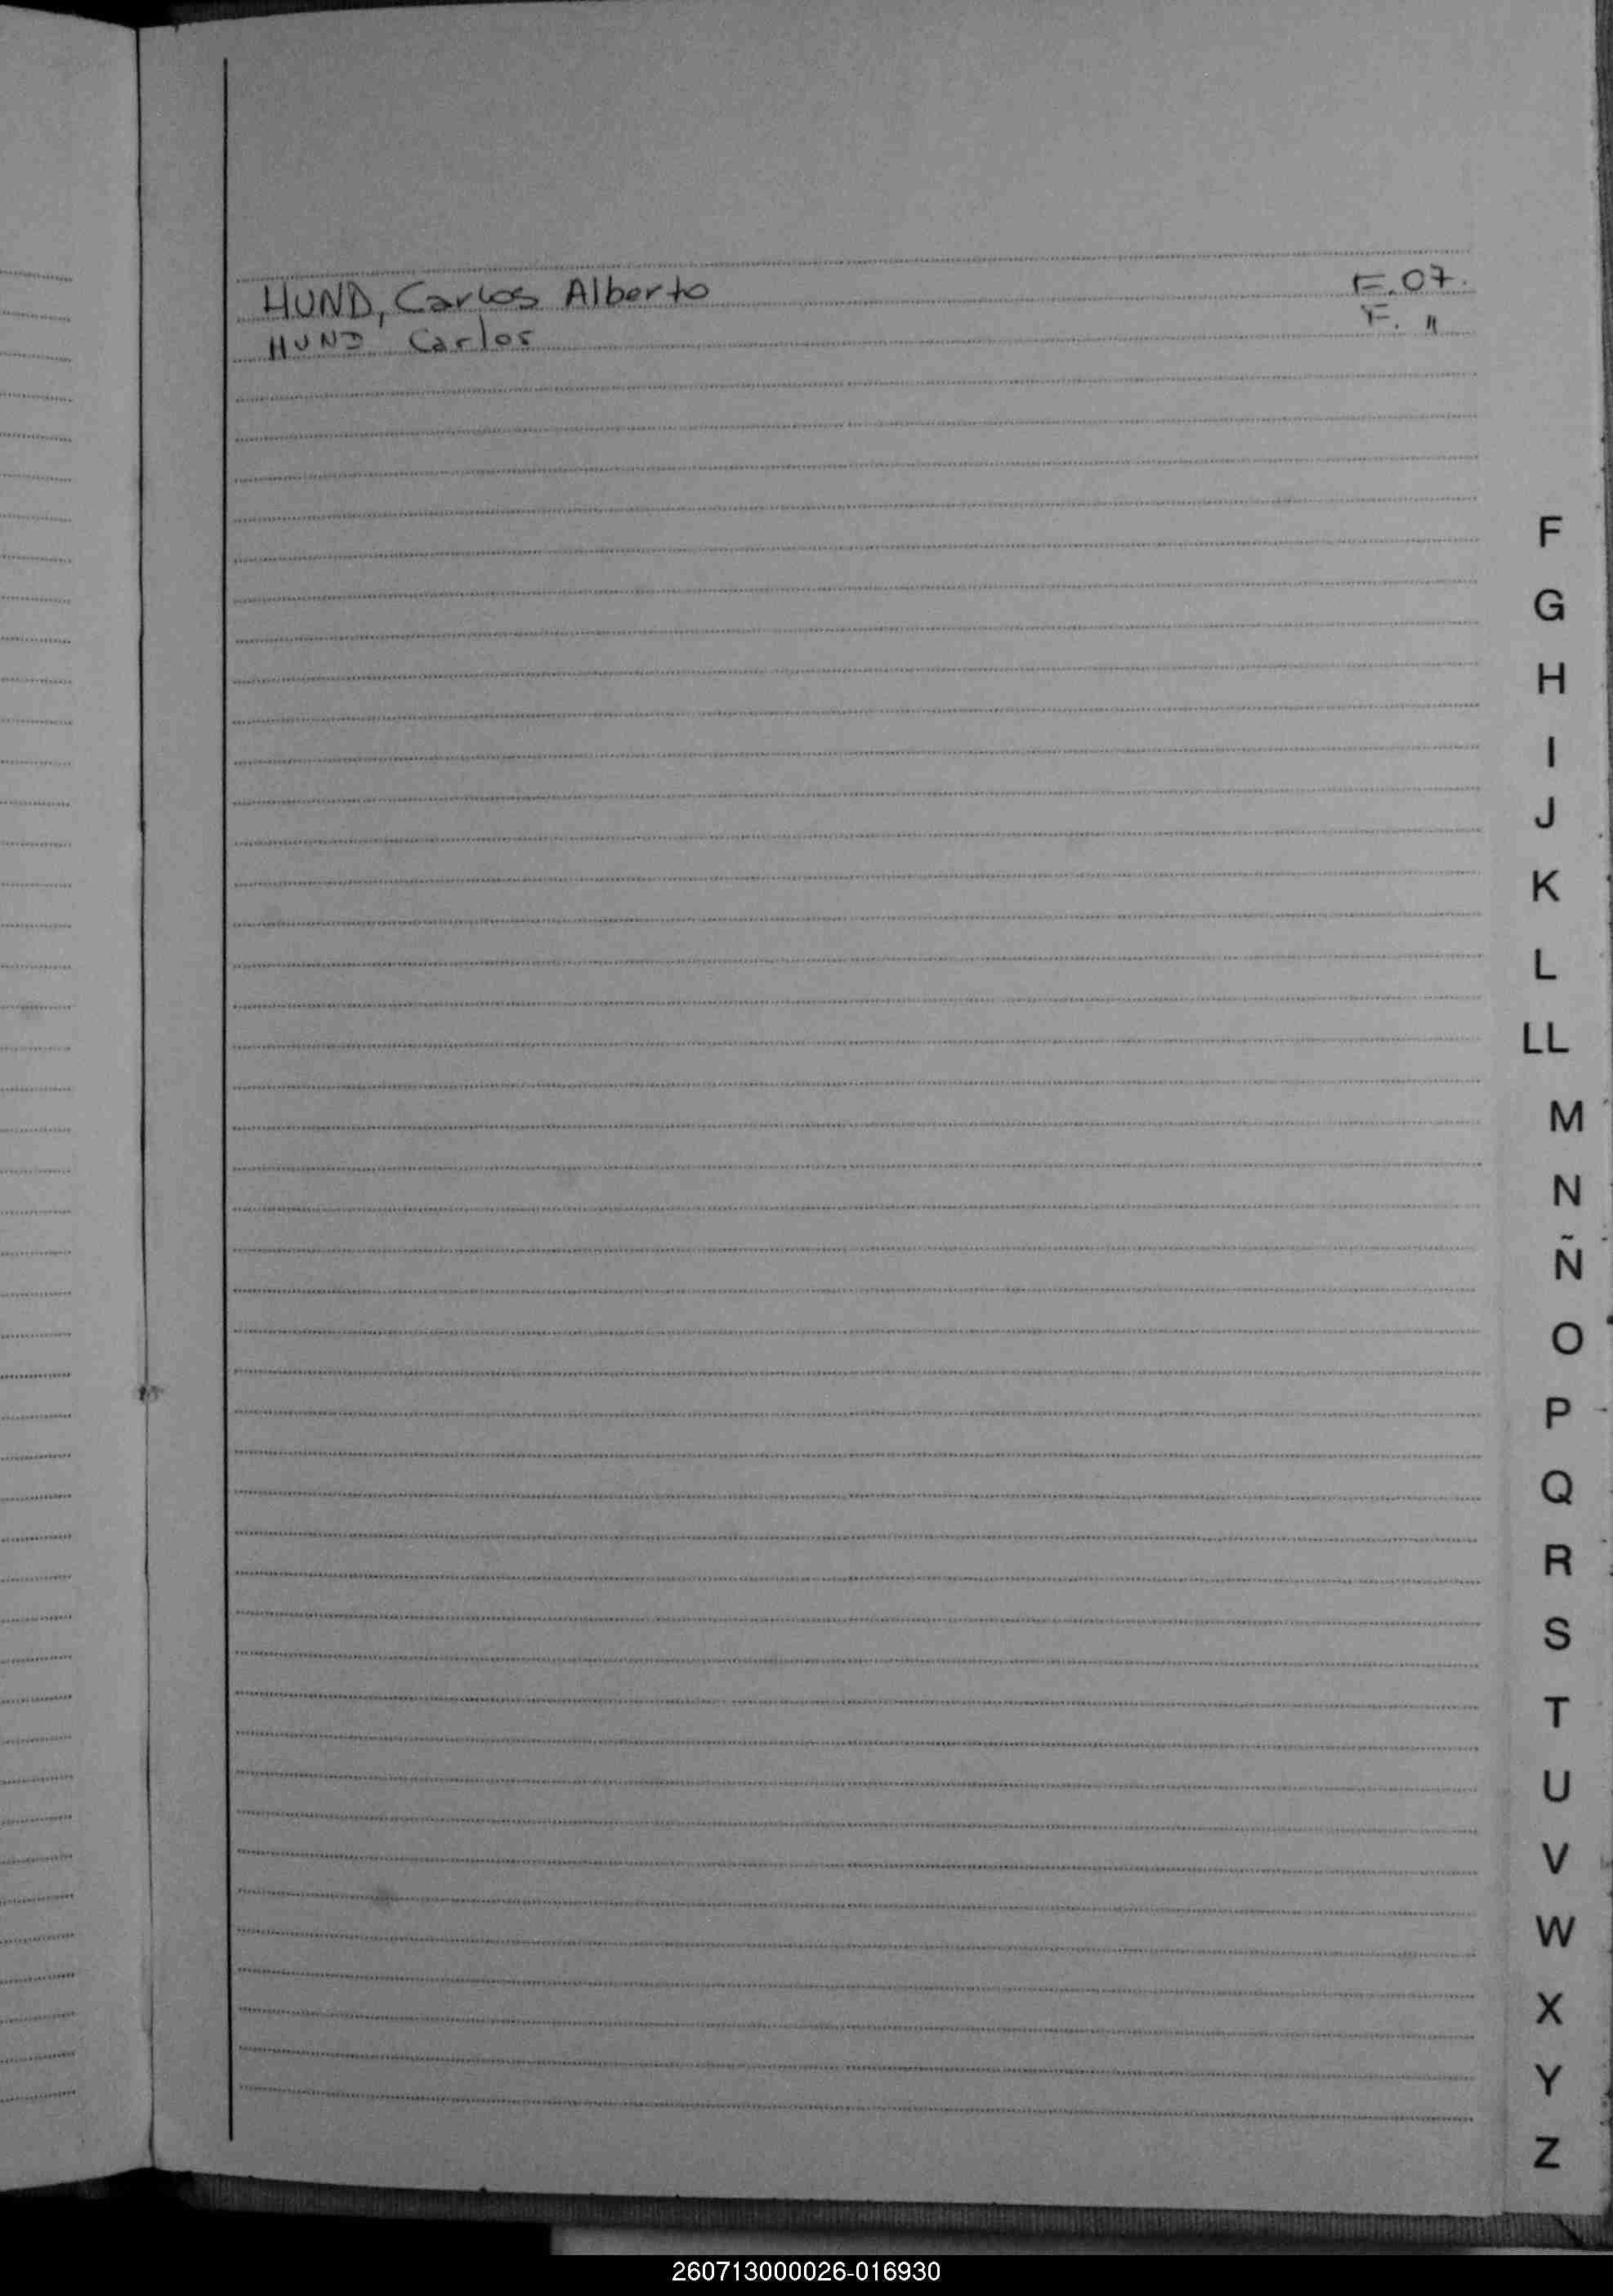 HUND, Carlos Alberto F.07.
HUND Carlos F. "
F
G
H
I
J
K
L
LL
M
N
Ñ
O
P
Q
R
S
T
U
V
W
X
Y
Z
260713000026-016930